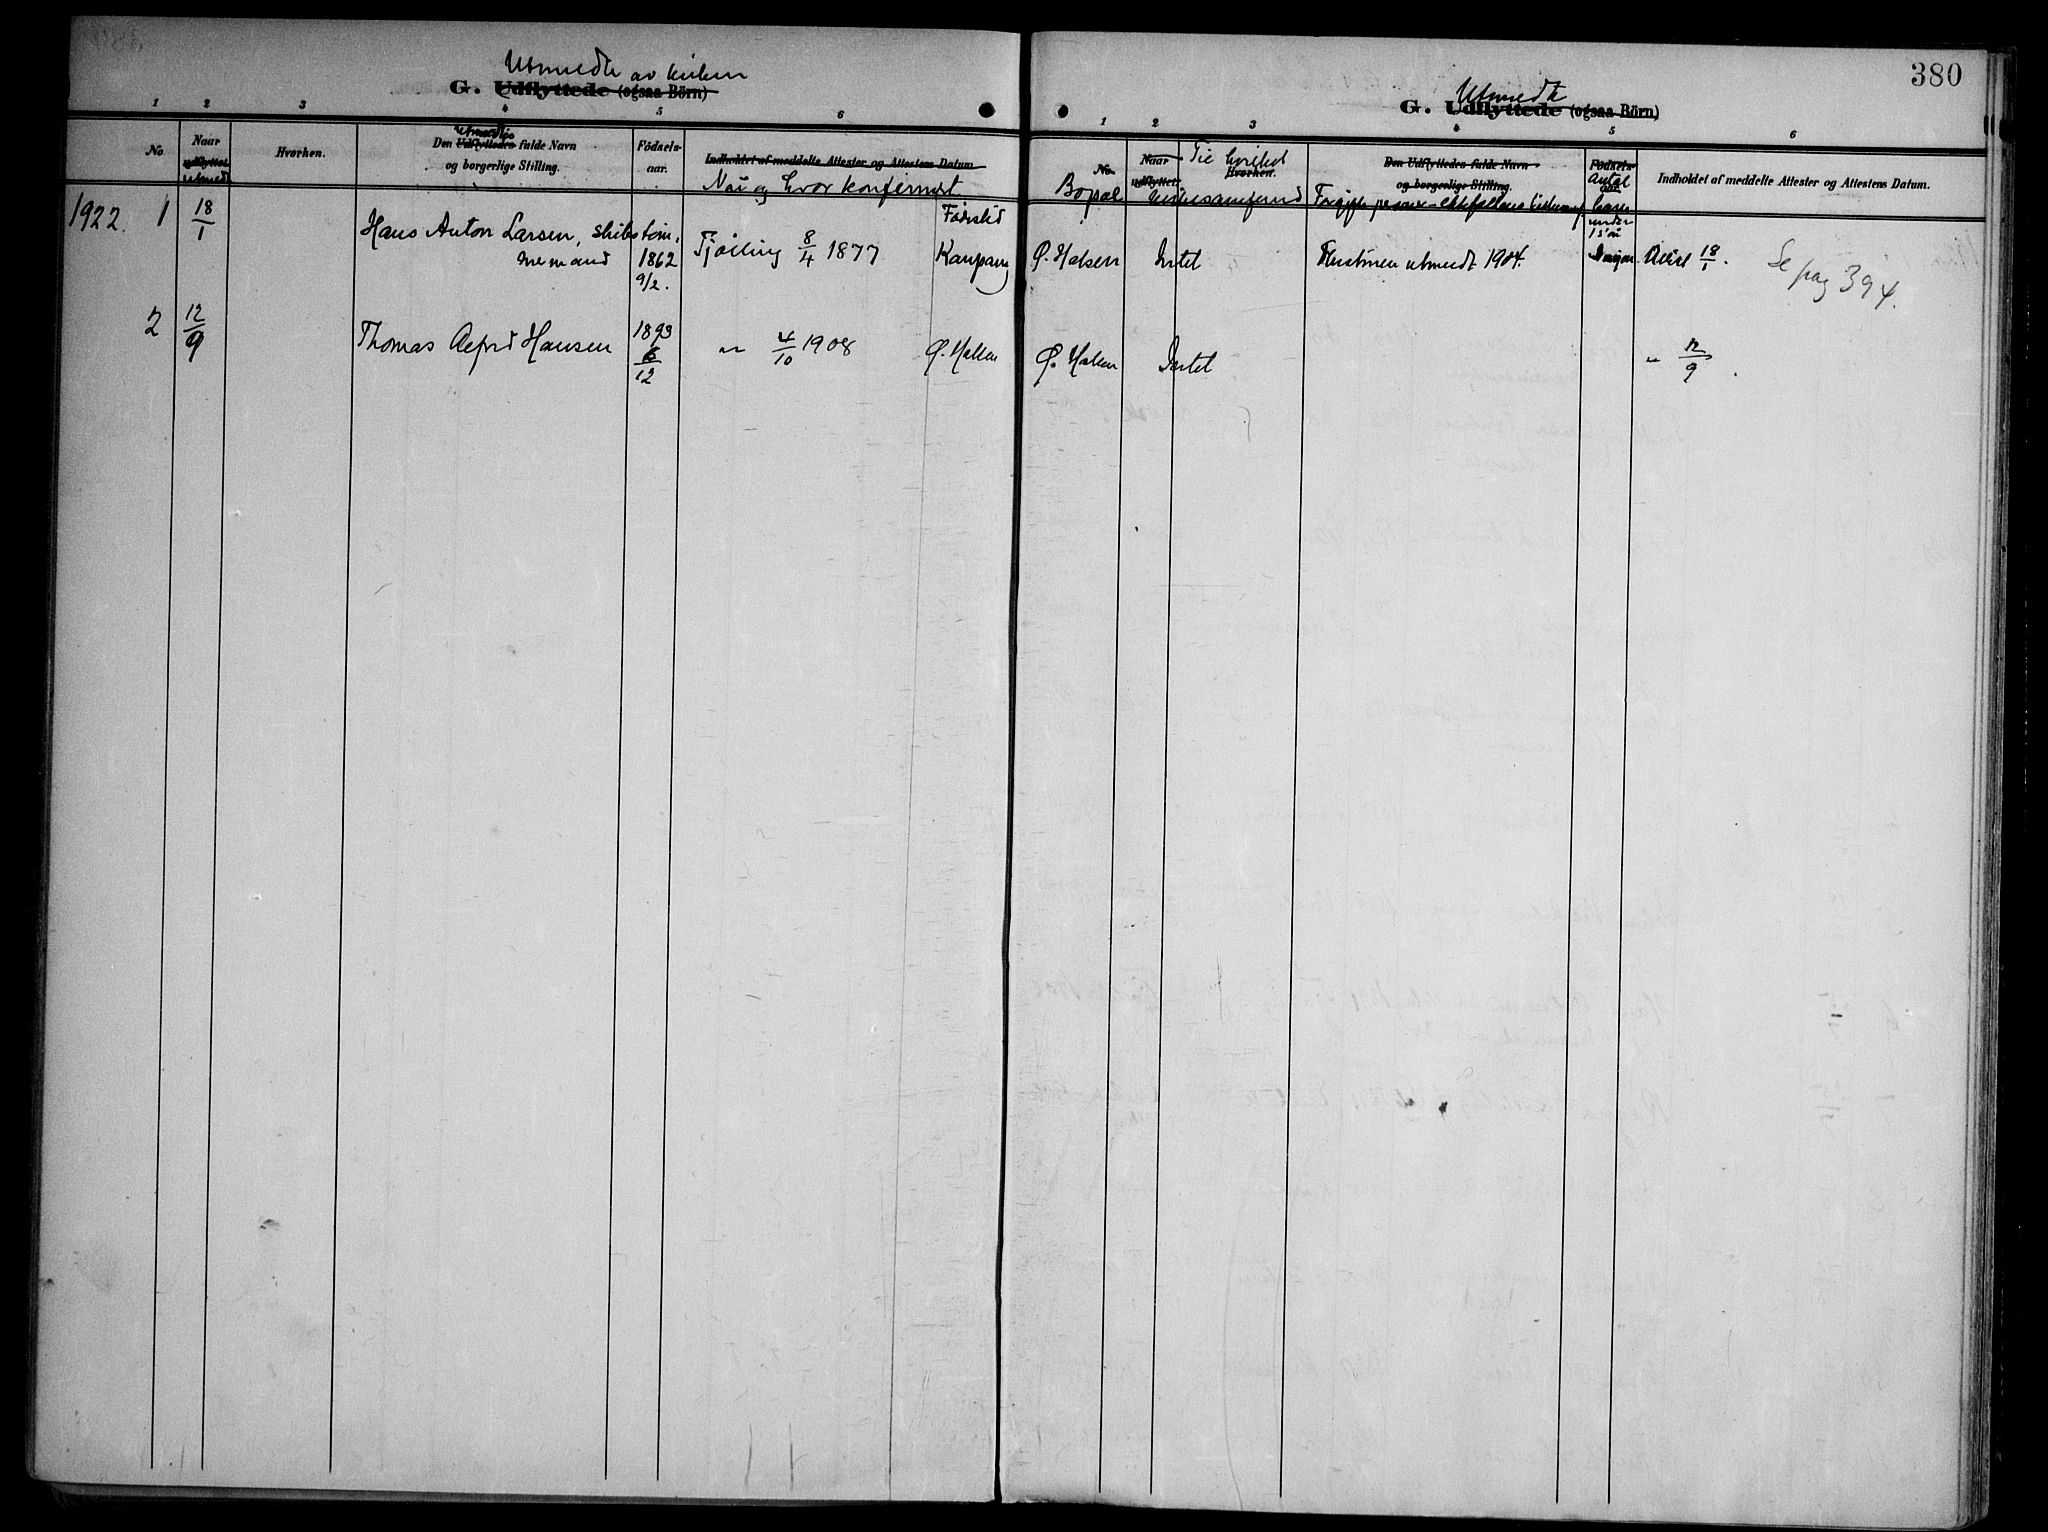 380
Utmeldte av kirken
G. Udflyttede (ogsaa Börn)
1 2 3 4 5 6
No.
Naar udflyttet utmeldt
Hvorhen.
Den Udflyttedes Utmeldtes fulde Navn
og borgerlige Stilling.
Fødsels-
aar.
Indholdet af meddelte Attester og Attestens Datum
Når og hvor konfirmert
Fødested
1922. 1 18/1
Hans Anton Larsen,
1862
9/2.
Tjølling 8/4 1877
Kaupang
2 12/9
Thomas Alfred Hansen
1893
6/12
" 4/10 1908
Ø. Halsen
Utmeldte
G. Udflyttede (ogsaa Börn)
1 2 3 4 5 6
No.
Bopæl
Naar
udflyttet
Til hvilket
Hvorhen.
kirkesamfund
Den Udflyttedes fulde Navn
og borgerlige Stilling.
Fødsels-
aar
Antal
barn
under
15 år
Indholdet af meddelte Attester og Attestens Datum.
Ø. Halsen
Intet
Hustruen utmeldt 1904.
Ingen
Attest 18/1.
Se pag 394.
Ø. Halsen
Intet
" 12/9.